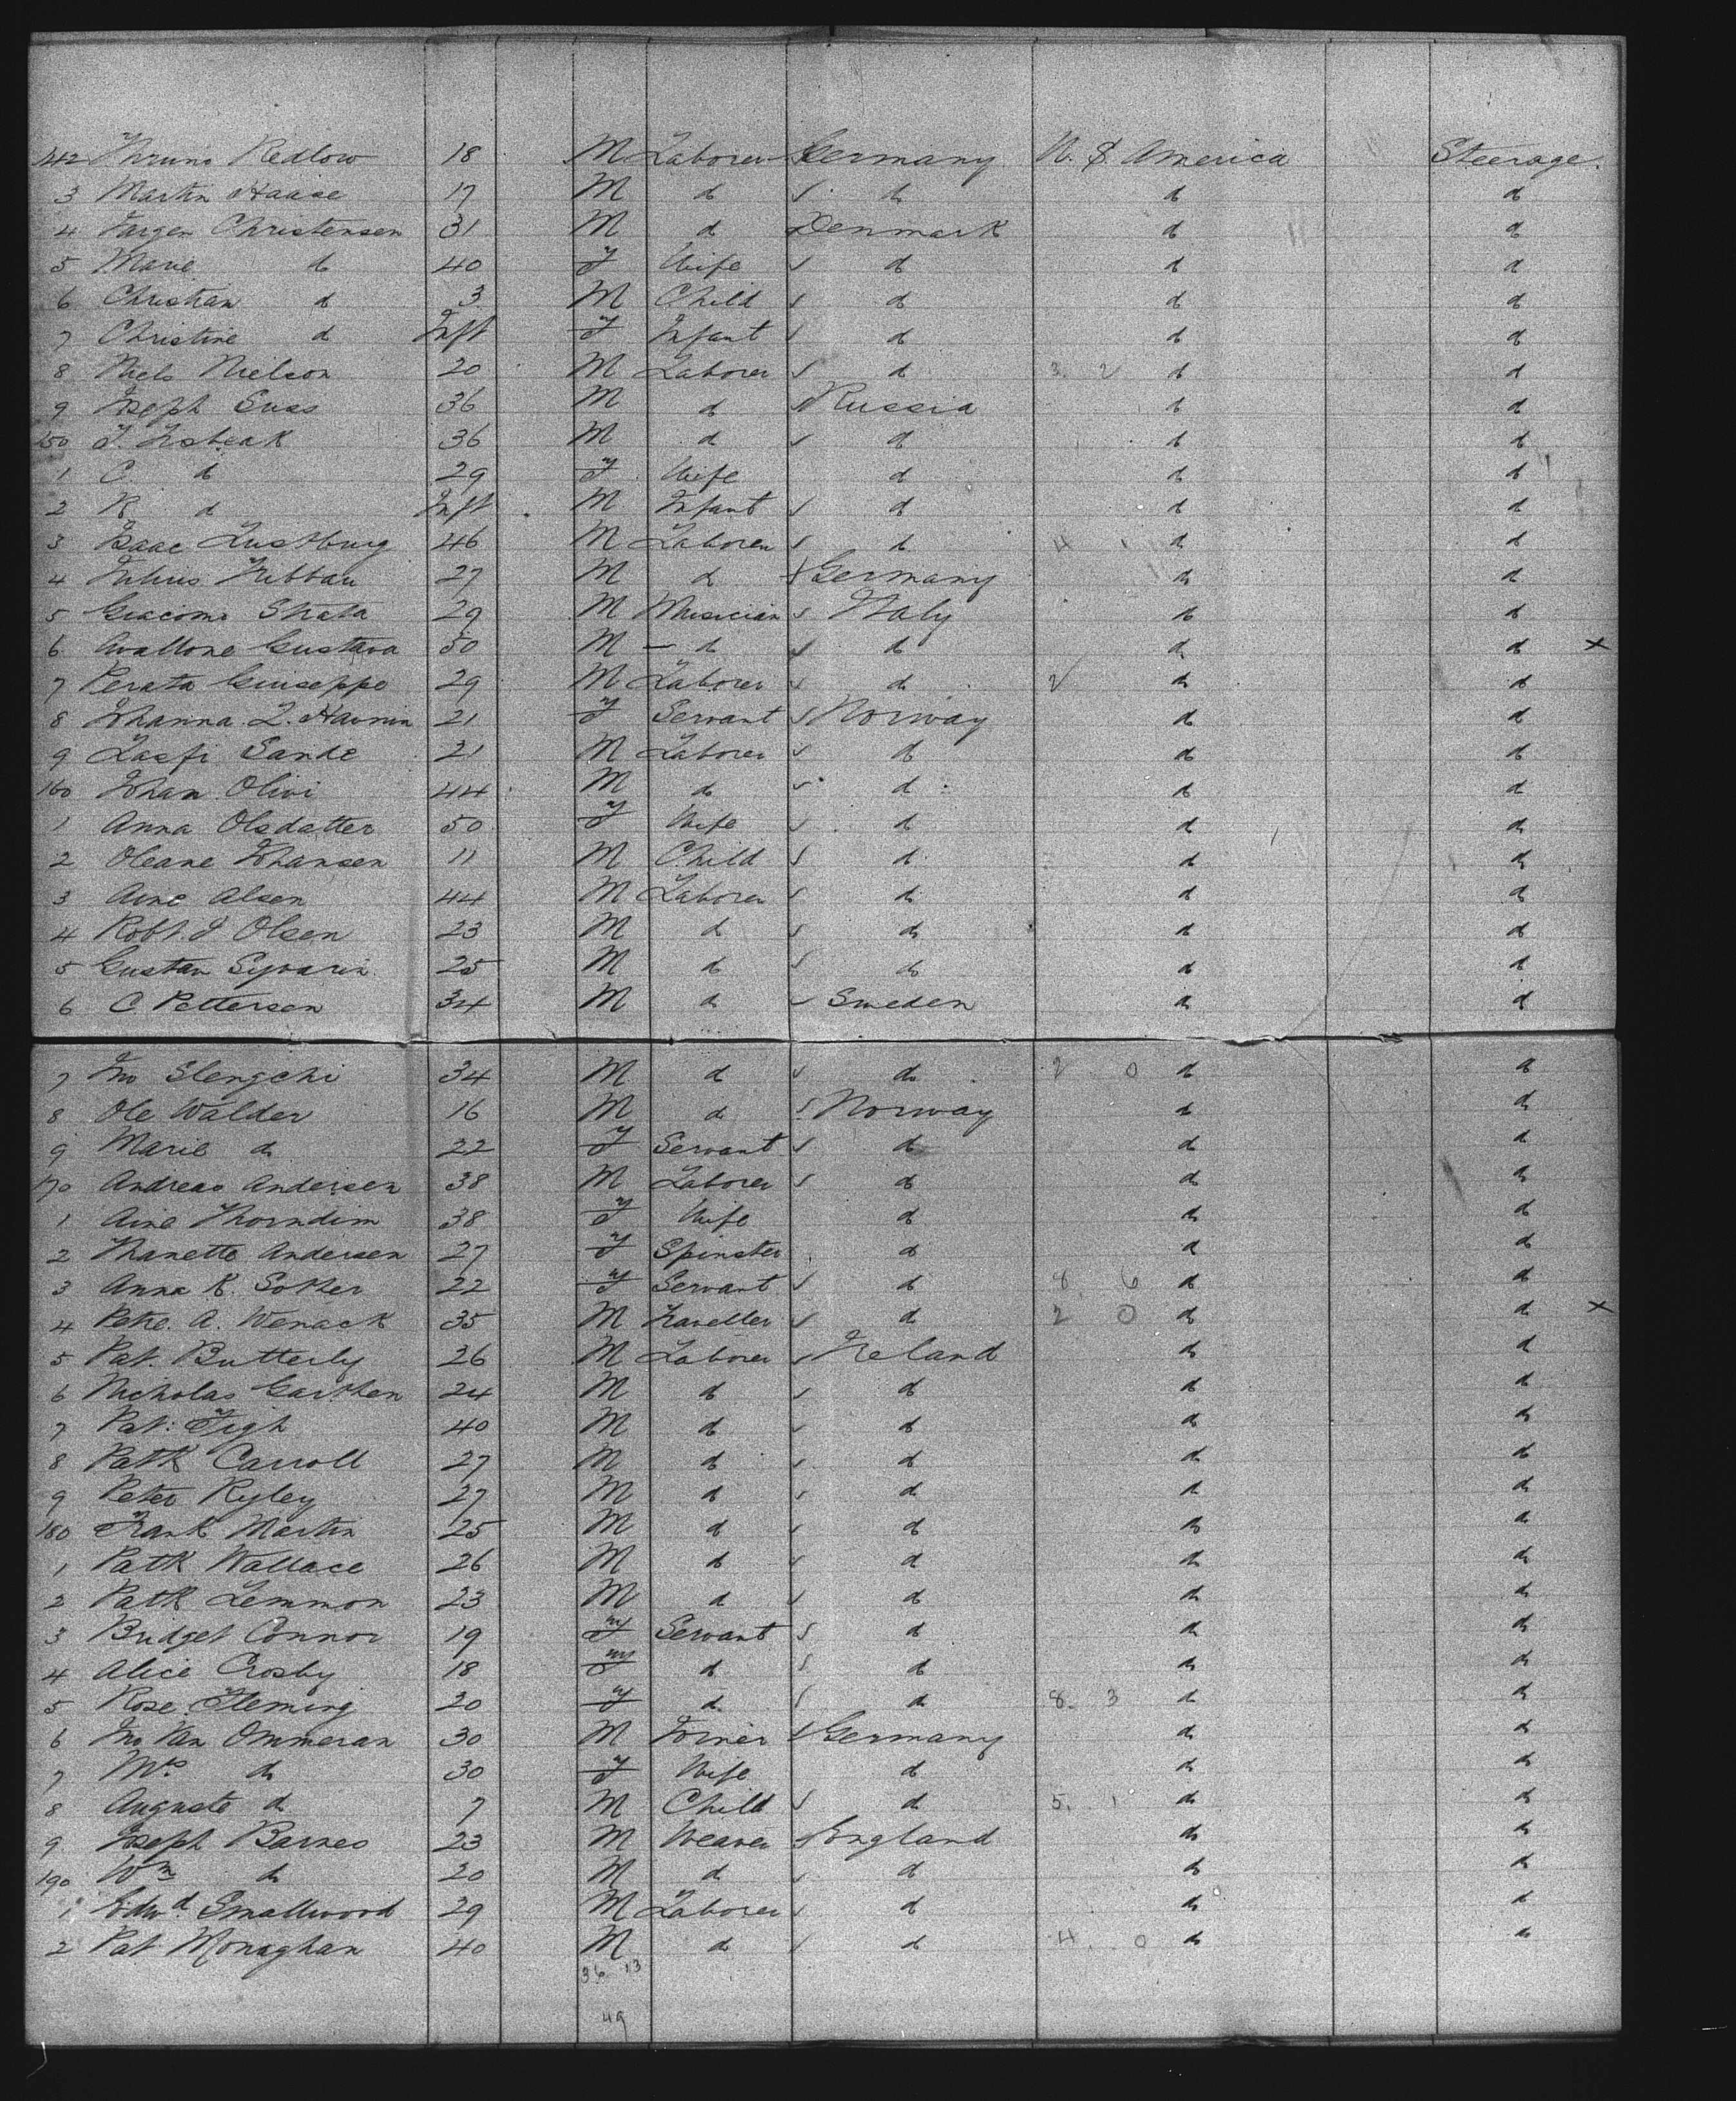 142 Bruno Redlow 18 M Laborer Germany U. S. America Steerage
3 Martin Haase 17 M d d d d
4 Jargen Christensen 31 M d Denmark d d
5 Marie d 40 F Wife d d d
6 Christian d 3 M Child d d d
7 Christine d Inft F Infant d d d
8 Niels Nielson 20 M Laborer d 3 2 d d
9 Joseph Suss 36 M d Russia d d
150 J. 36 M d d d d
1 C. d 29 F Wife d d d
2 R d Inft M Infant d d d
3 Isaac Lustburg 46 M Laborer d 4 1 d d
4 Julius 27 M d Germany d d
5 Giacomo Strata 29 M Musician Italy d d
6 Avallone Gustava 50 M – d d d d x
7 Perata Giuseppe 29 M Laborer d 2 d d
8 Johanna L. 21 F Servant Norway d d
9 Sande 21 M Laborer d d d
160 Johan Olivi 44 M d d d d
1 Anna Olsdatter 50 F Wife d d d
2 Oleane Johansen 11 M Child d d d
3 Arne Alsen 44 M Laborer d d d
4 Robt. J Olsen 23 M d d d d
5 Gustav 25 M d d d d
6 C Pettersen 34 M d Sweden d d
7 Jno Slengchi 34 M d d 2 0 d d
8 Ole Walder 16 M d Norway d d
9 Marie d 22 F Servant d d d
170 Andreas Andersen 38 M Laborer d d d
1 Aine Thorndim 38 F Wife d d d
2 Andersen 27 F Spinster d d d
3 Anna K. Sother 22 F Servant d 8 6 d d
4 Petre. A. Wenack 35 M Traveller d 2 0 d d x
5 Pat. Butterly 26 M Laborer Ireland d d
6 Nicholas Garthen 24 M d d d d
7 Pat: Tigh 40 M d d d d
8 Patk Carroll 27 M d d d d
9 Peter Ryley 27 M d d d d
180 Frank Martin 25 M d d d d
1 Patk Wallace 26 M d d d d
2 Patk Lemmon 23 M d d d d
3 Bridget Connor 19 F Servant d d d
4 Alice Crosby 18 F d d d d
5 Rose Fleming 20 F d d 8. 3 d d
6 Jno Van Ommeran 30 M Joiner Germany d d
7 Mrs d 30 F Wife d d d
8 Auguste d 7 M Child d 5. 1 d d
9 Joseph Barnes 23 M Weaver England d d
190 Wm d 20 M d d d d
1 Edwd Smallwood 29 M Laborer d d d
2 Pat Monaghan 40 M d d 4 0 d d
36 13
49